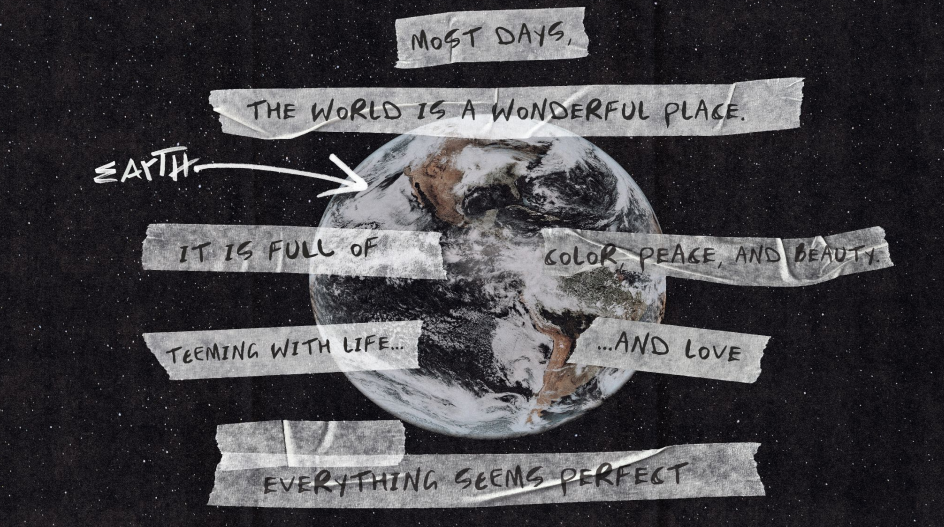 MOST DAYS,
THE WORLD IS A WONDERFUL PLACE.
EARTH
IT IS FULL OF
COLOR, PEACE, AND BEAUTY.
TEEMING WITH LIFE...
...AND LOVE
EVERYTHING SEEMS PERFECT